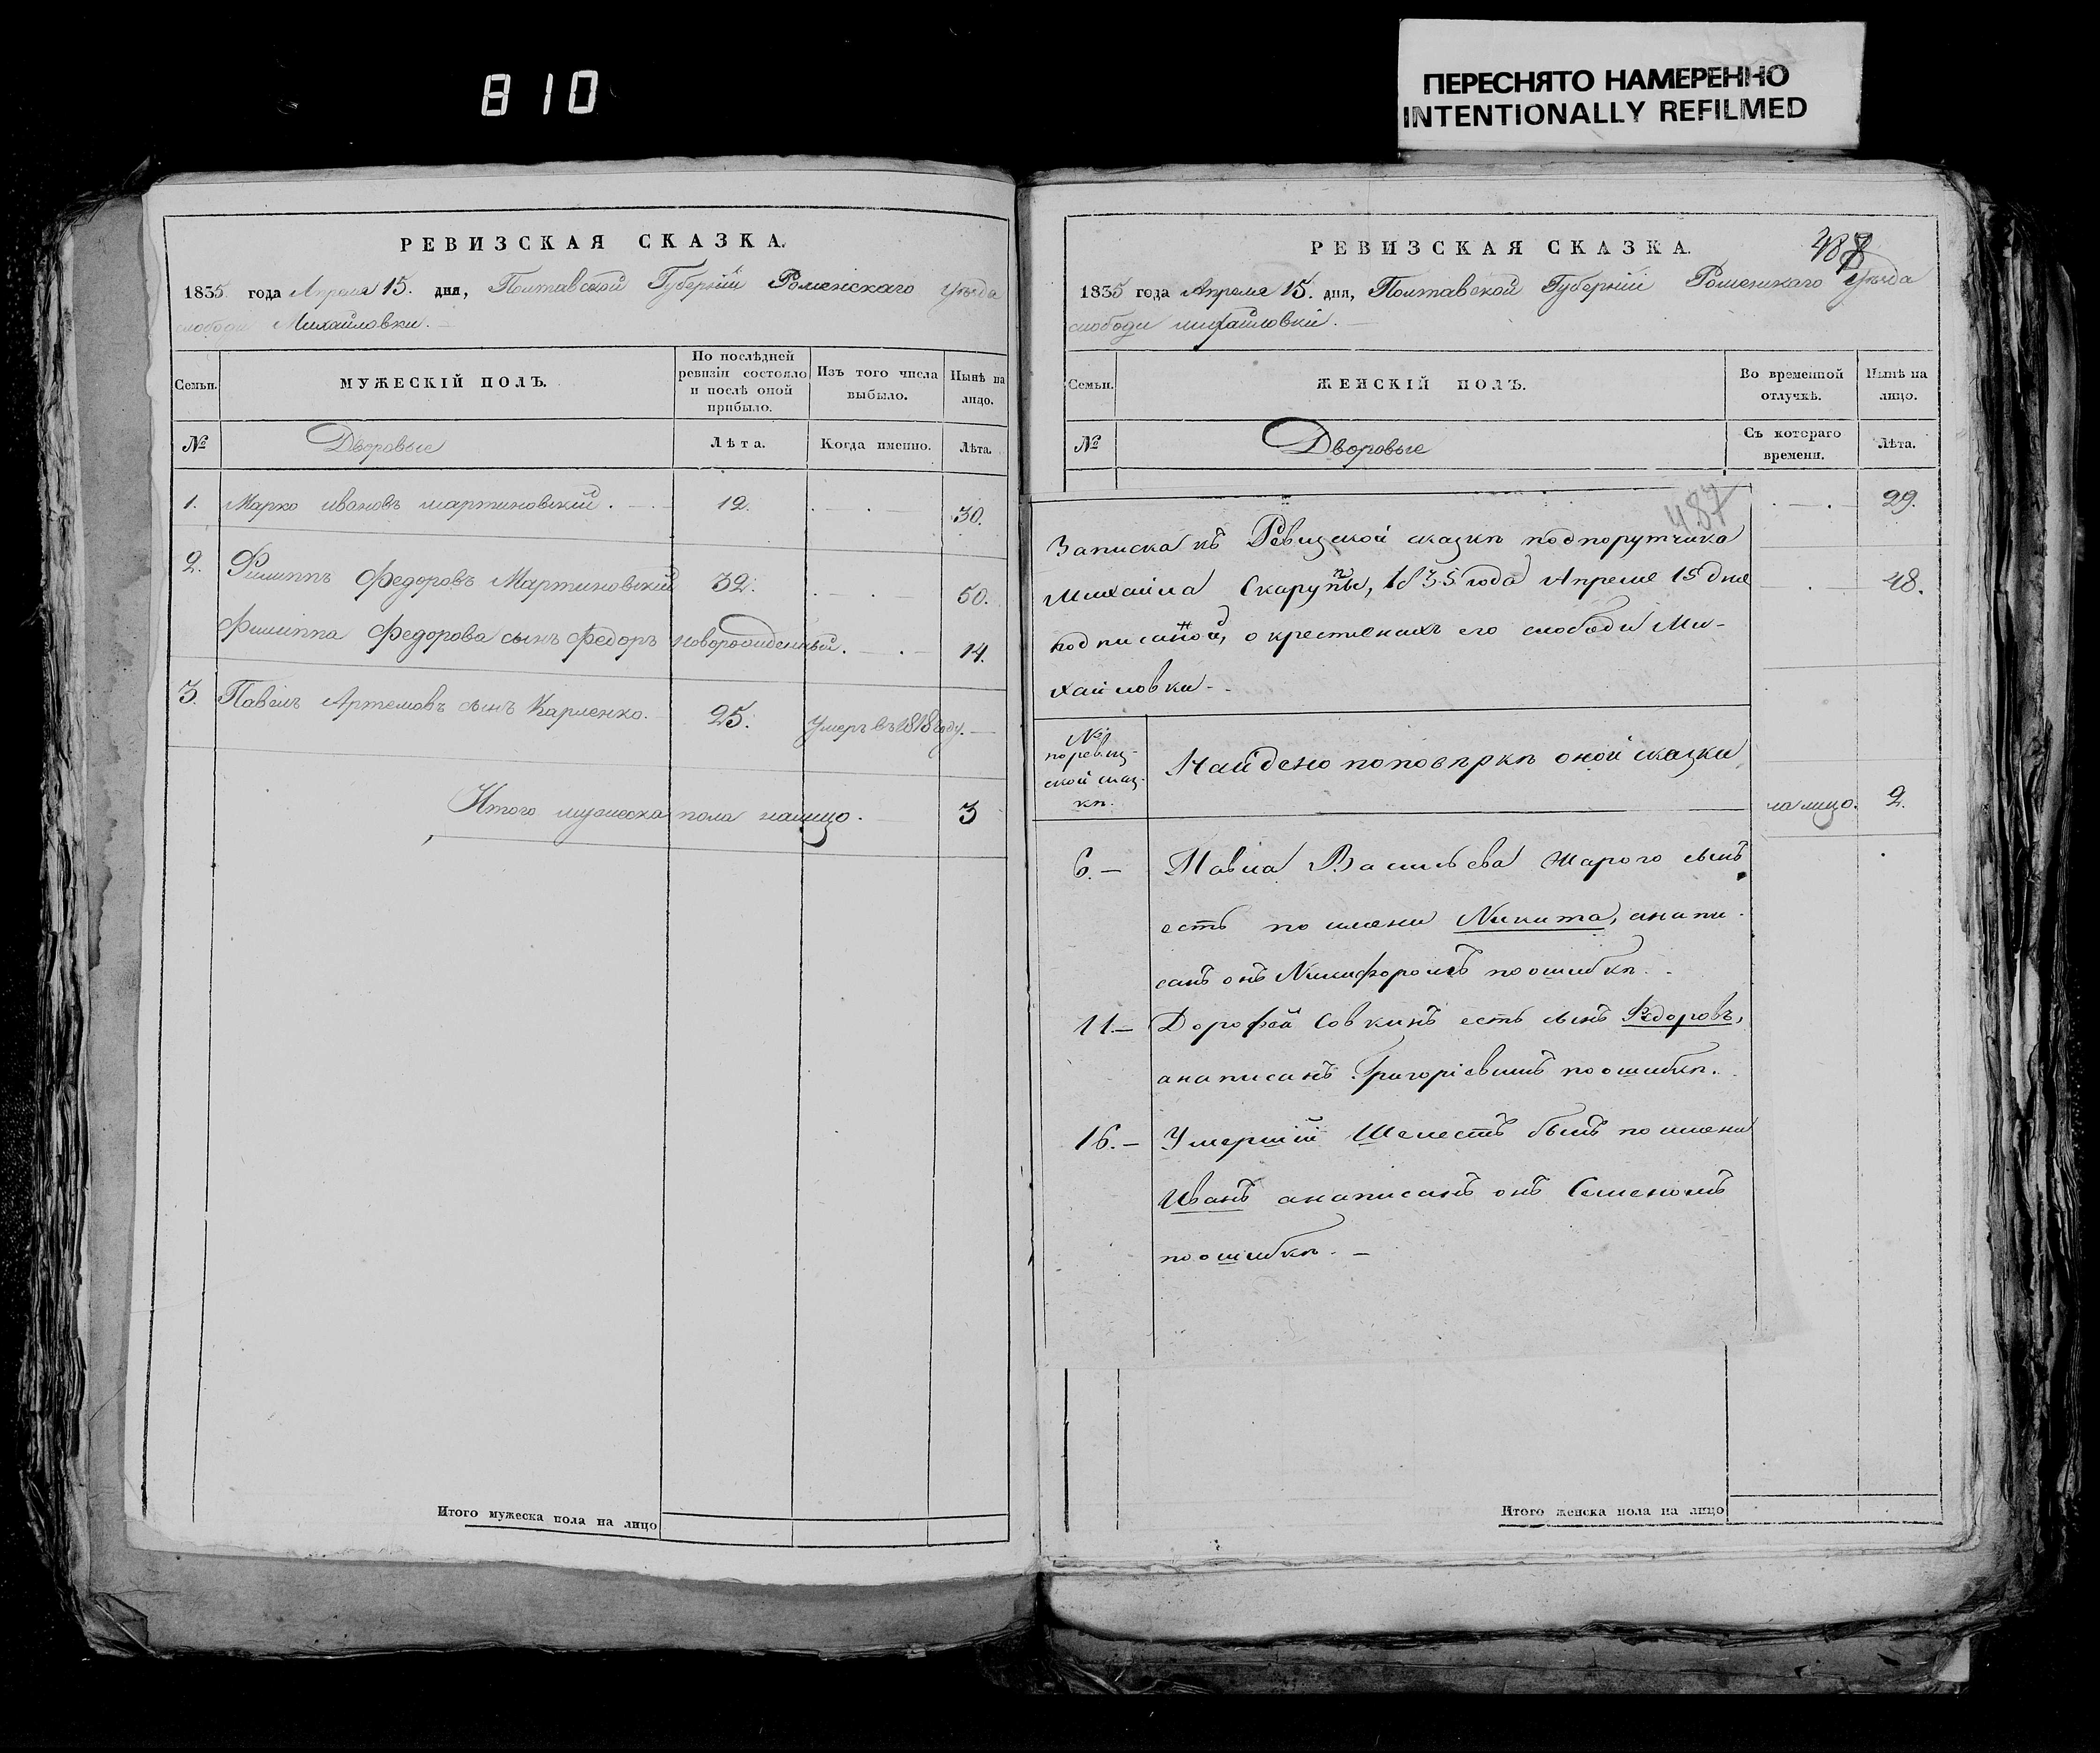 810
ПЕРЕСНЯТО НАМЕРЕННО
INTENTIONALLY REFILMED
РЕВИЗСКАЯ СКАЗКА.
1835 года Апреля 15. дня, Полтавской Губерніи Роменскаго Уѣзда
слободы Михайловки.
Семьи.
МУЖЕСКІЙ ПОЛЪ.
По послѣдней ревизіи состояло и послѣ оной прибыло.
Изъ того числа выбыло.
Нынѣ на лицо.
№
Дворовые
Лѣта.
Когда именно.
Лѣта.
1. Марко ивановъ мартиновскій. 12. 30.
2. Филиппъ Федоровъ Мартиновскій 32. 50.
Филиппа Федорова сынъ Федоръ новорожденный. 14.
3. Павелъ Артемовъ сынъ Карпенко. 25. Умеръ въ 1818 году.
Итого мужеска пола налицо. 3
Итого мужеска пола на лицо
РЕВИЗСКАЯ СКАЗКА.
488
1835 года Апреля 15. дня, Полтавской Губерніи Роменскаго Уѣзда
слободы михайловки.
Семьи.
ЖЕНСКІЙ ПОЛЪ.
Во временной отлучкѣ.
Нынѣ на лицо.
№
Дворовые
Съ котораго времени.
Лѣта.
29.
48.
на лицо. 2.
487
Записка къ Ревизской сказкѣ подпорутчика
Михайла Скарупы, 1835 года Апреля 15 дня
подписаной, о крестянахъ его слободы Ми-
хайловки.
№ по ревиз-
ской сказ-
кѣ.
Найдено по повѣркѣ оной сказки
6.- Павла Васильева Шарого сынъ
есть по имени Никита, а напи-
санъ онъ Никифоромъ по ошибкѣ.
11.- Дорофей Совкинъ есть сынъ Федоровъ,
а написанъ Григоріевымъ по ошибкѣ.
16.- Умершій Шелестъ былъ по имени
Иванъ а написанъ онъ Семеномъ
по ошибкѣ.
Итого женска пола на лицо